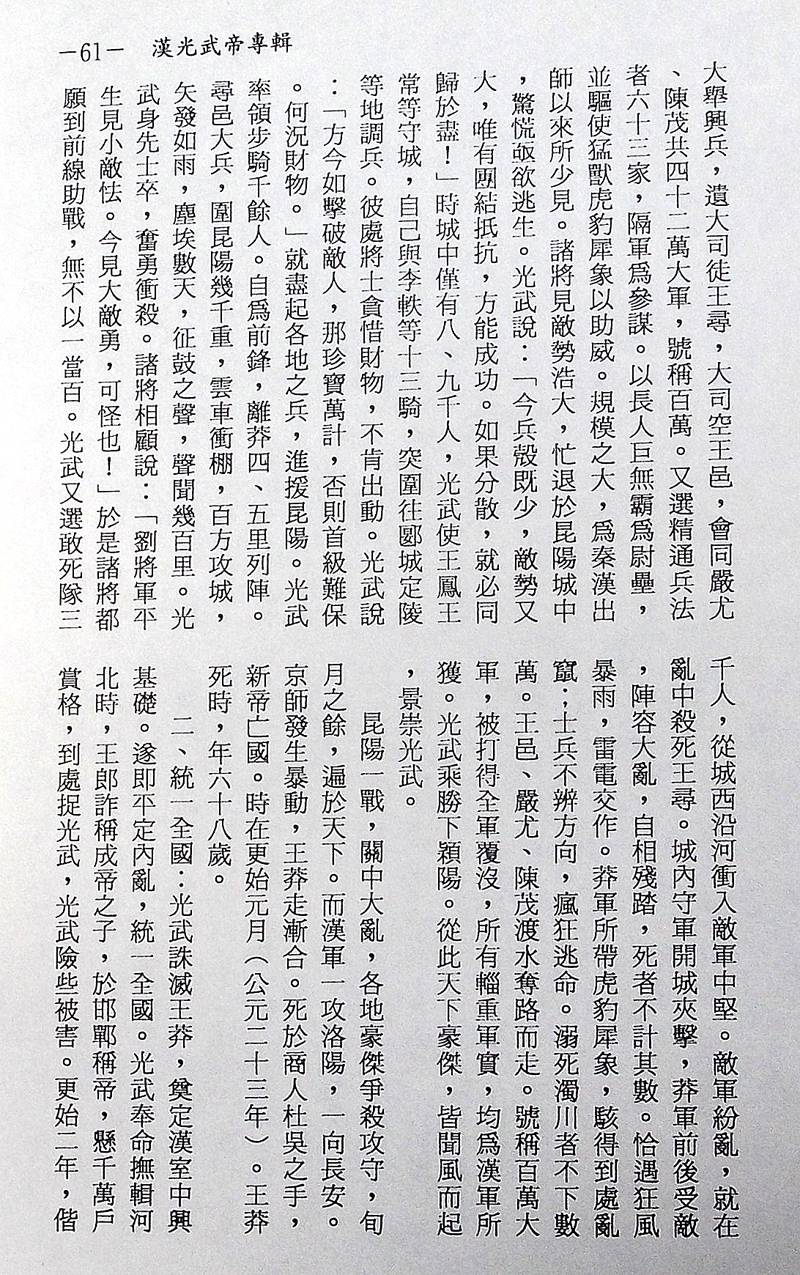 漢光武帝專輯
－61－
大舉興兵，遣大司徒王尋，大司空王邑，會同嚴尤
、陳茂共四十二萬大軍，號稱百萬。又選精通兵法
者六十三家，隔軍爲參謀。以長人巨無霸爲尉壘，
並驅使猛獸虎豹犀象以助威。規模之大，爲秦漢出
師以來所少見。諸將見敵勢浩大，忙退於昆陽城中
，驚慌亟欲逃生。光武說：「今兵殼既少，敵勢又
大，唯有團結抵抗，方能成功。如果分散，就必同
歸於盡！」時城中僅有八、九千人，光武使王鳳王
常等守城，自己與李軼等十三騎，突圍往郾城定陵
等地調兵。彼處將士貪惜財物，不肯出動。光武說
：「方今如擊破敵人，那珍寶萬計，否則首級難保
。何況財物。」就盡起各地之兵，進援昆陽。光武
率領步騎千餘人。自爲前鋒，離莽四、五里列陣。
尋邑大兵，圍昆陽幾千重，雲車衝棚，百方攻城，
矢發如雨，塵埃數天，征鼓之聲，聲聞幾百里。光
武身先士卒，奮勇衝殺。諸將相顧說：「劉將軍平
生見小敵怯。今見大敵勇，可怪也！」於是諸將都
願到前線助戰，無不以一當百。光武又選敢死隊三
千人，從城西沿河衝入敵軍中堅。敵軍紛亂，就在
亂中殺死王尋。城內守軍開城夾擊，莽軍前後受敵
，陣容大亂，自相殘踏，死者不計其數。恰遇狂風
暴雨，雷電交作。莽軍所帶虎豹犀象，駭得到處亂
竄；士兵不辨方向，瘋狂逃命。溺死濁川者不下數
萬。王邑、嚴尤、陳茂渡水奪路而走。號稱百萬大
軍，被打得全軍覆沒，所有輜重軍實，均爲漢軍所
獲。光武乘勝下穎陽。從此天下豪傑，皆聞風而起
，景崇光武。
昆陽一戰，關中大亂，各地豪傑爭殺攻守，旬
月之餘，遍於天下。而漢軍一攻洛陽，一向長安。
京師發生暴動，王莽走漸合。死於商人杜吳之手，
新帝亡國。時在更始元月（公元二十三年）。王莽
死時，年六十八歲。
二、統一全國：光武誅滅王莽，奠定漢室中興
基礎。遂即平定內亂，統一全國。光武奉命撫輯河
北時，王郎詐稱成帝之子，於邯鄲稱帝，懸千萬戶
賞格，到處捉光武，光武險些被害。更始二年，偕